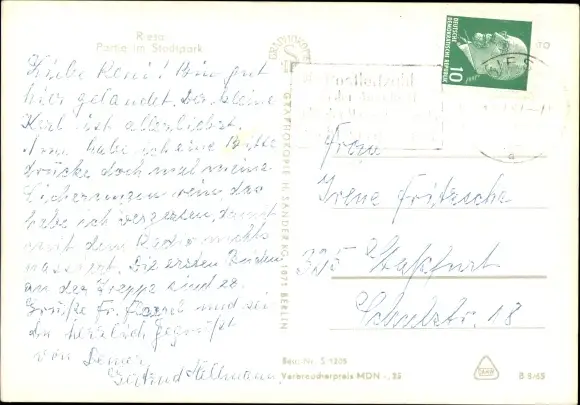 Riesa
Partie im Stadtpark
Liebe Reni! Bin gut
hier gelandet. Der kleine
Kerl ist allerliebst.
Nun habe ich eine Bitte
drücke doch mal meine
Sicherungen rein das
habe ich vergessen, damit
mit dem Radio nichts
passiert. Die ersten Beiden
an der Treppe sind es.
Grüße Fr. und sei
Du herzlich gegrüßt
von Deiner
Gertrud Hellmann
GRAPHOKOPIE H. SANDER KG, 1071 BERLIN
DEUTSCHE
DEMOKRATISCHE REPUBLIK
10
Frau
Irene Fritzsche
325 Staßfurt
Schulstr. 18
Best.-Nr. S 1205
Verbraucherpreis MDN -,25
B 5/65